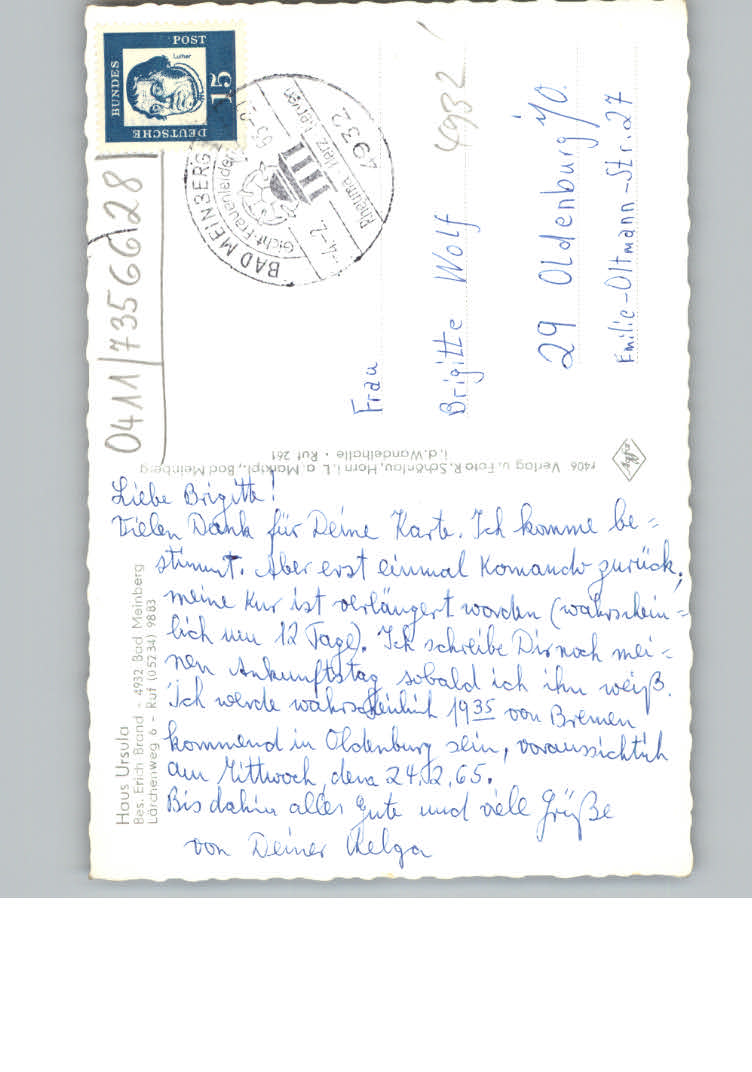 Liebe Brigitte!
Vielen Dank für Deine Karte. Ich komme be=
stimmt. Aber erst einmal Komando zurück,
meine Kur ist verlängert worden (wahrschein=
lich um 12 Tage). Ich schreibe Dir noch mei=
nen Ankunftstag sobald ich ihn weiß.
Ich werde wahrscheinlich 19 35 von Bremen
kommend in Oldenburg sein, voraussichtlich
am Mittwoch, dem 24.2.65.
Bis dahin alles Gute und viele Grüße
von Deiner Helga
Haus Ursula
Bes. Erich Brand - 4932 Bad Meinberg
Lärchenweg 6 - Ruf (05734) 9883
r406 Verlag u. Foto R. Schönlau, Horn i. L. a. Marktpl., Bad Meinberg
i. d. Wandelhalle · Ruf 261
Agfa
0411/7356628
DEUTSCHE
BUNDES
POST
15
Luther
BAD MEINBERG
Gicht-Frauenleiden
Rheuma-Herz-Nerven
4932
4932
Frau
Brigitte Wolf
29 Oldenburg i/O.
Emilie-Oltmann-Str. 27